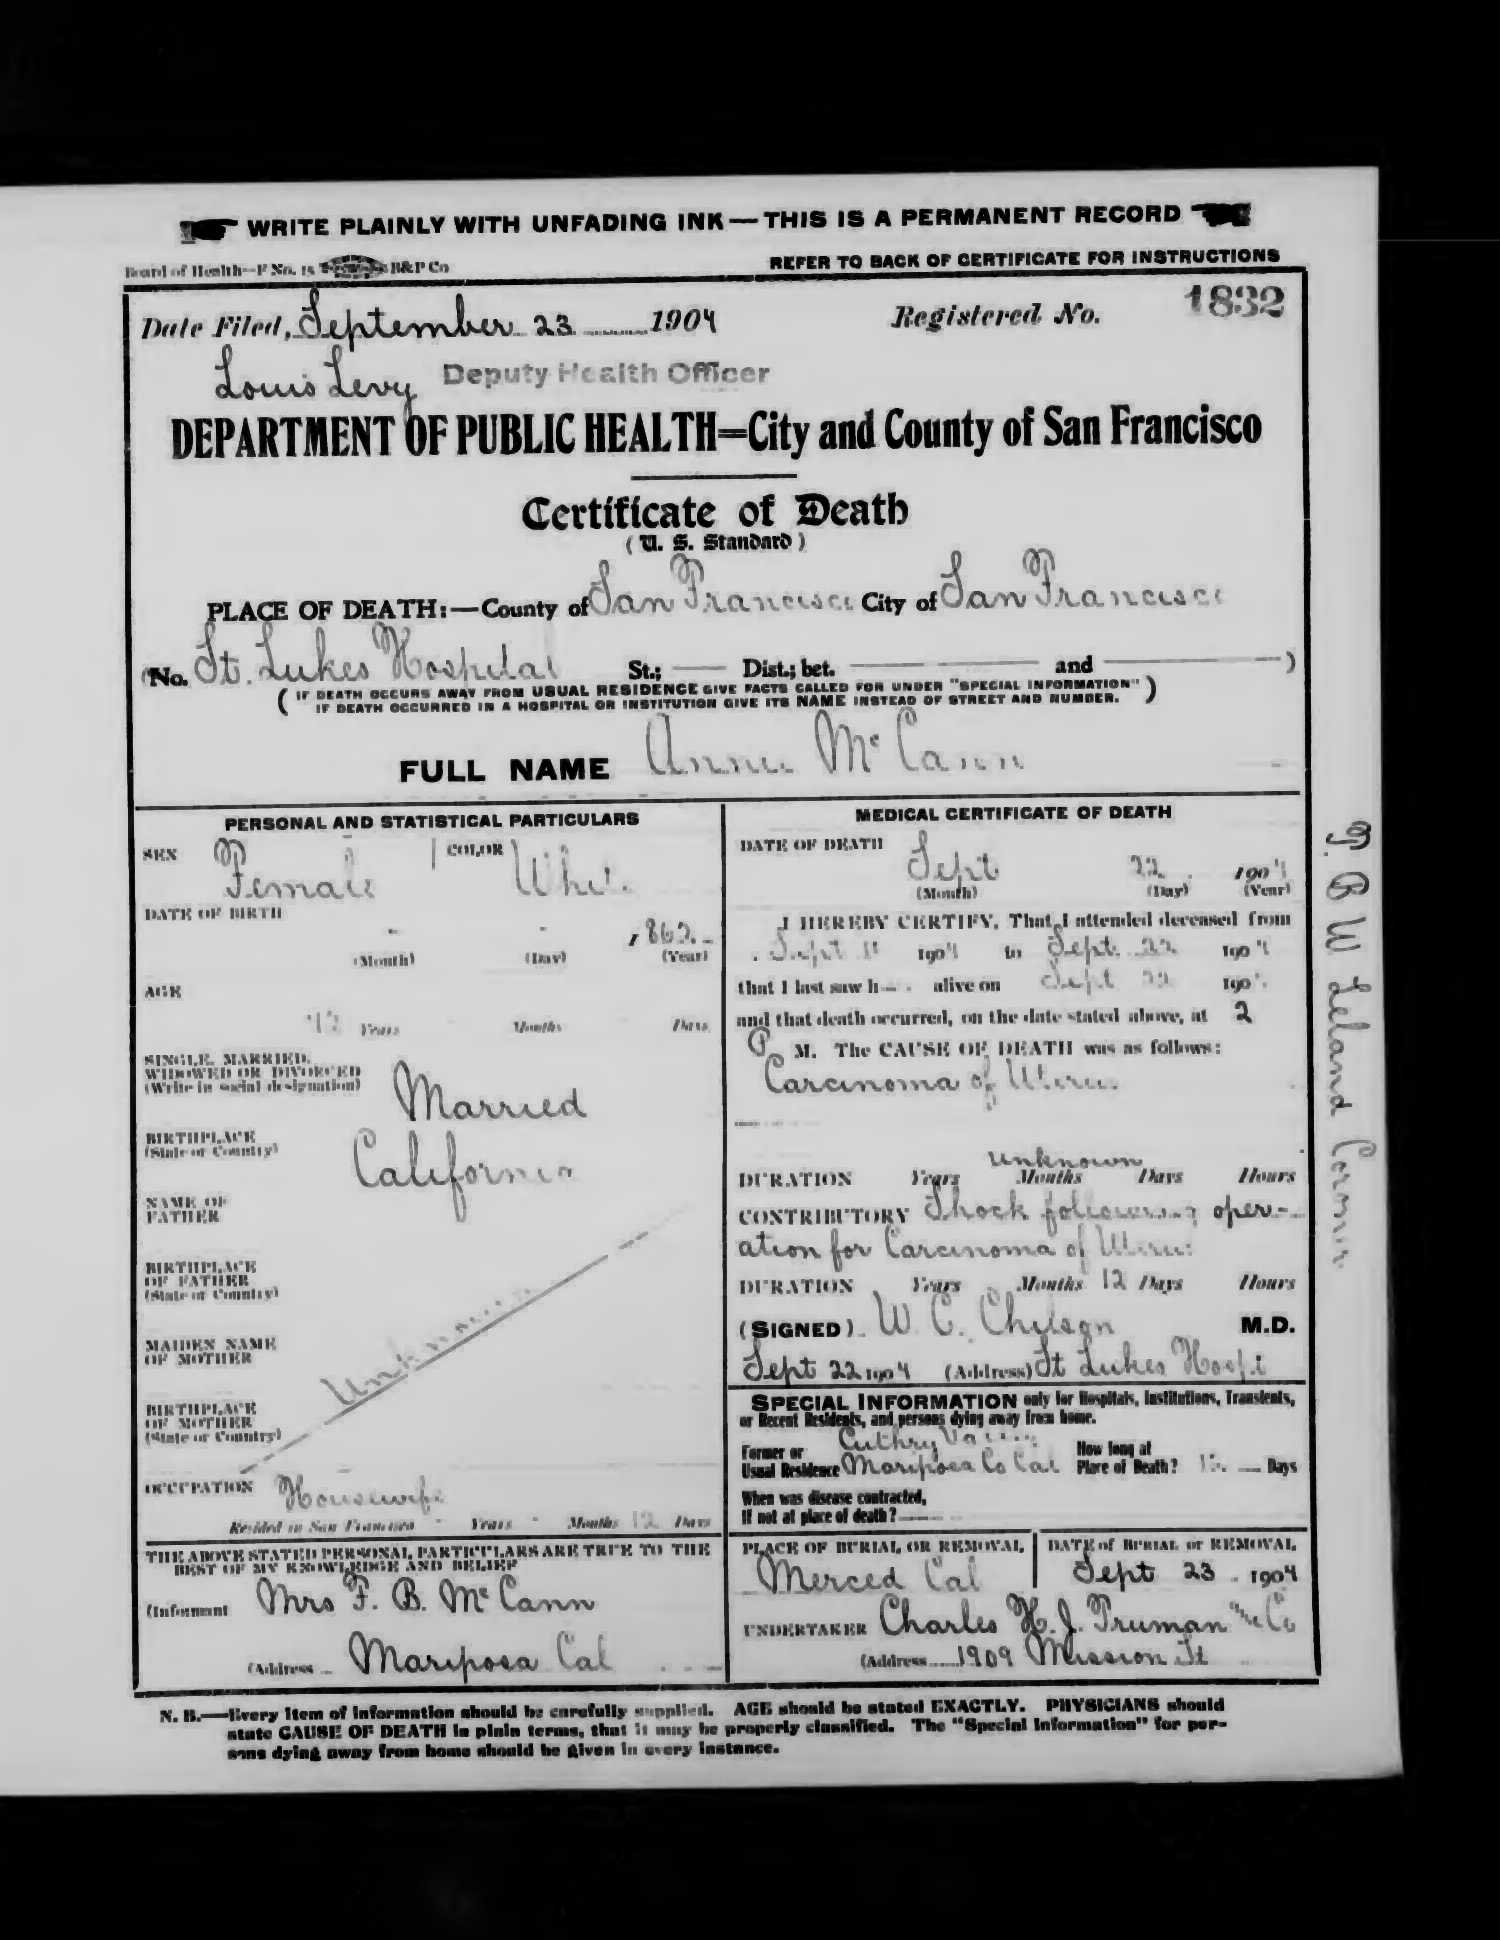 WRITE PLAINLY WITH UNFADING INK — THIS IS A PERMANENT RECORD
Board of Health—F No. 15 B&P Co
REFER TO BACK OF CERTIFICATE FOR INSTRUCTIONS
Date Filed, September 23 1904
Registered No. 1832
Louis Levy Deputy Health Officer
DEPARTMENT OF PUBLIC HEALTH=City and County of San Francisco
Certificate of Death
(U. S. Standard)
PLACE OF DEATH:—County of San Francisco City of San Francisco
(No. St. Lukes Hospital St.; Dist.; bet. and )
( IF DEATH OCCURS AWAY FROM USUAL RESIDENCE GIVE FACTS CALLED FOR UNDER "SPECIAL INFORMATION" )
IF DEATH OCCURRED IN A HOSPITAL OR INSTITUTION GIVE ITS NAME INSTEAD OF STREET AND NUMBER.
FULL NAME Annie McCann
PERSONAL AND STATISTICAL PARTICULARS
SEX Female COLOR White
DATE OF BIRTH
- - 1862
(Month) (Day) (Year)
AGE
42 Years Months Days
SINGLE, MARRIED,
WIDOWED OR DIVORCED
(Write in social designation)
Married
BIRTHPLACE
(State or Country)
California
NAME OF
FATHER
BIRTHPLACE
OF FATHER
(State or Country)
Unknown
MAIDEN NAME
OF MOTHER
BIRTHPLACE
OF MOTHER
(State or Country)
OCCUPATION Housewife
Resided in San Francisco - Years - Months 12 Days
THE ABOVE STATED PERSONAL PARTICULARS ARE TRUE TO THE
BEST OF MY KNOWLEDGE AND BELIEF
(Informant Mrs F. B. McCann
(Address Mariposa Cal
MEDICAL CERTIFICATE OF DEATH
DATE OF DEATH
Sept 22 1904
(Month) (Day) (Year)
I HEREBY CERTIFY, That I attended deceased from
Sept 11 1904 to Sept. 22 1904
that I last saw h alive on Sept 22 190
and that death occurred, on the date stated above, at 2
P M. The CAUSE OF DEATH was as follows:
Carcinoma of Uterus
unknown
DURATION Years Months Days Hours
CONTRIBUTORY Shock following oper-
ation for Carcinoma of Uterus
DURATION Years Months 12 Days Hours
(SIGNED) W. C. Chilson M.D.
Sept 22 1904 (Address) St Lukes Hospi
SPECIAL INFORMATION only for Hospitals, Institutions, Transients,
or Recent Residents, and persons dying away from home.
Former or
Usual Residence Mariposa Co Cal
How long at
Place of Death? 12 Days
When was disease contracted,
If not at place of death?
PLACE OF BURIAL OR REMOVAL
Merced Cal
DATE of BURIAL or REMOVAL
Sept 23 1904
UNDERTAKER Charles H. J. Truman and Co
(Address 1909 Mission St
N. B.—Every item of information should be carefully supplied. AGE should be stated EXACTLY. PHYSICIANS should
state CAUSE OF DEATH in plain terms, that it may be properly classified. The "Special Information" for per-
sons dying away from home should be given in every instance.
T. B W Leland Coroner